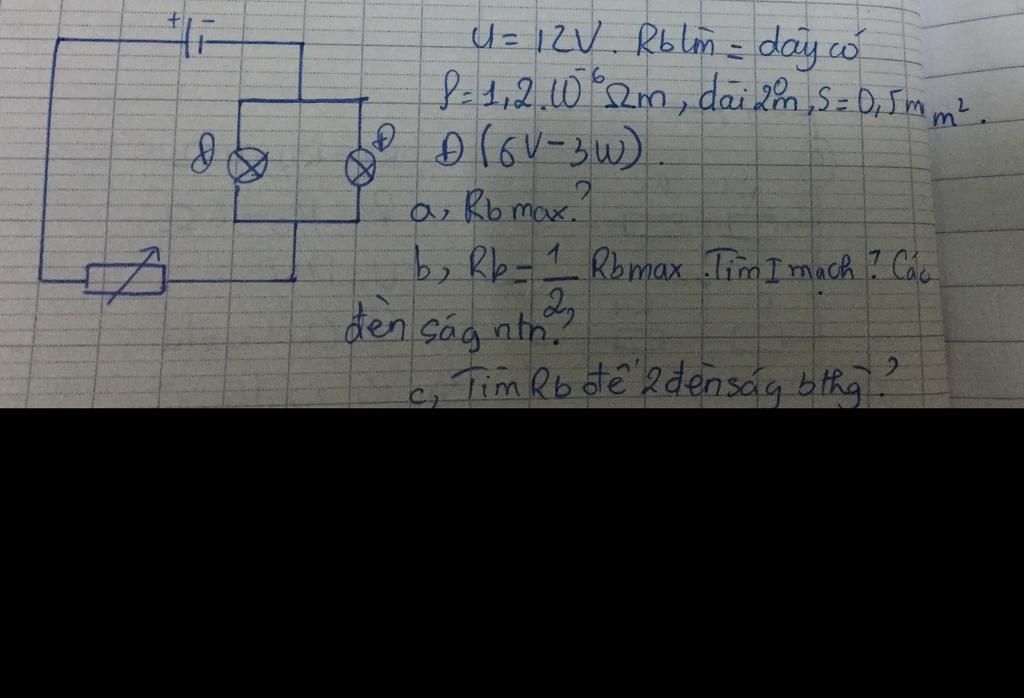 + -
U = 12V. Rb làm = dây có
ρ = 1,2.10⁻⁶ Ωm, dài m, S = 0,5mm².
Đ Đ Đ (6V-3W).
a, Rb max?
b, Rb = 1/2 Rbmax. Tìm I mạch? Các
đèn ság ntn?
c, Tìm Rb để 2 đèn ság bthg?